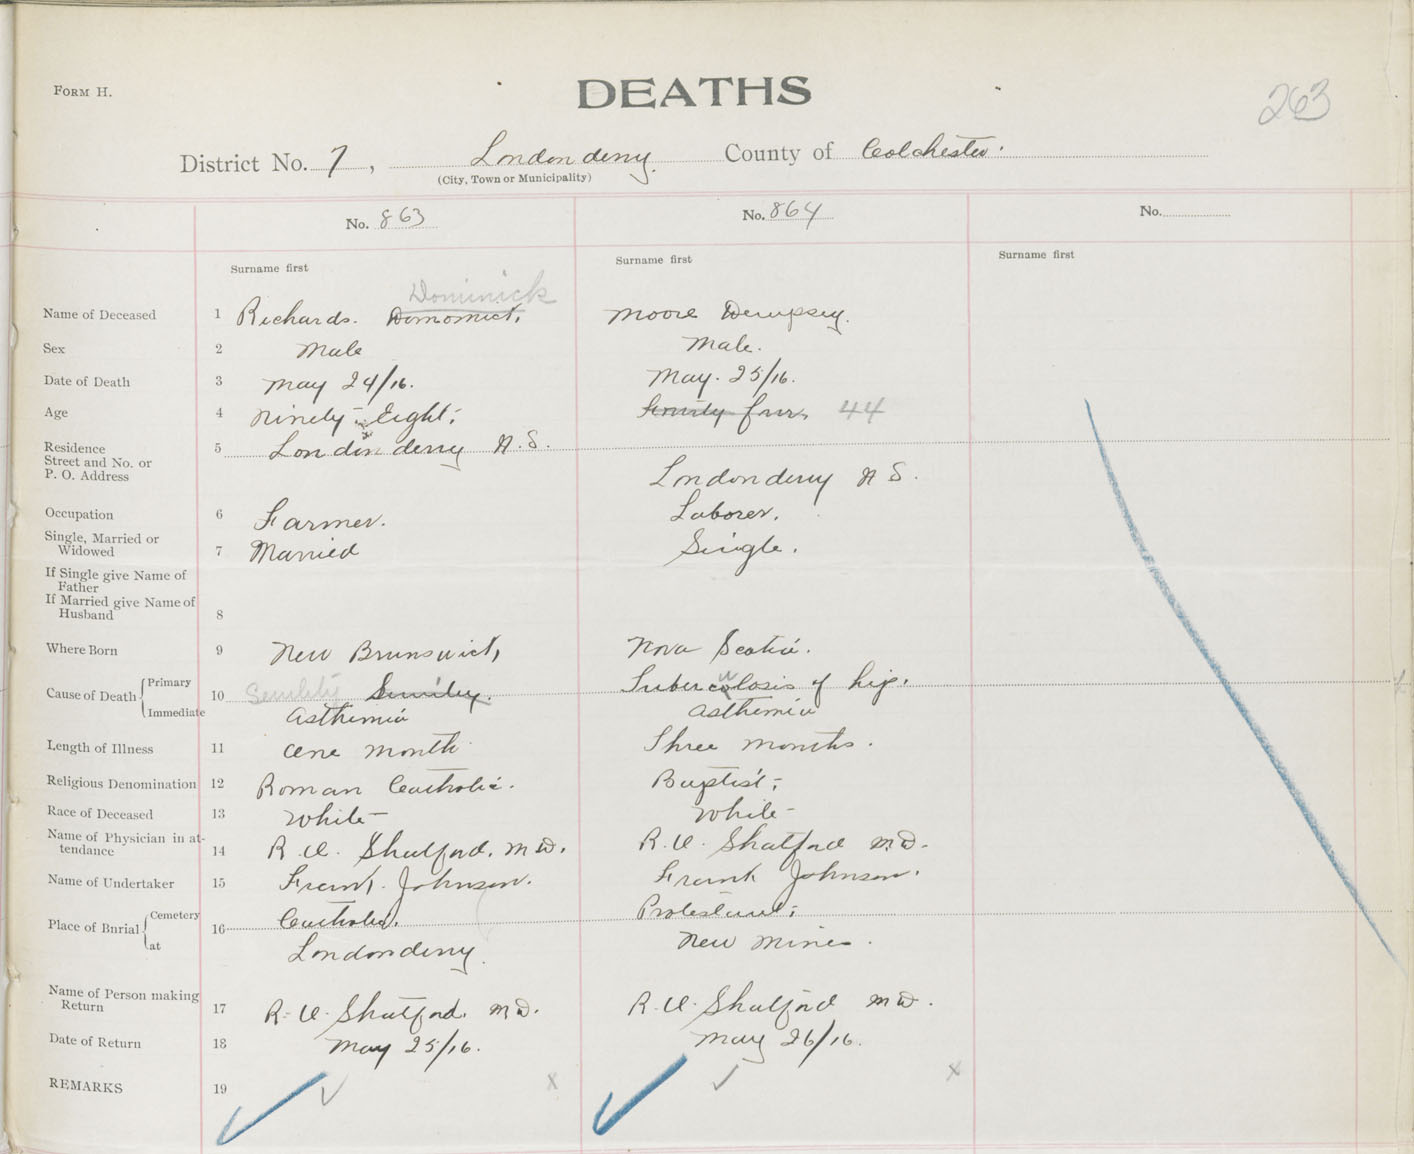 FORM H.
DEATHS
263
District No. 7, Londonderry. County of Colchester.
(City, Town or Municipality)
No. 863 No. 864 No.
Surname first Surname first Surname first
Dominick
Name of Deceased 1 Richards. Domomict, Moore Dempsey.
Sex 2 Male Male.
Date of Death 3 May 24/16. May. 25/16.
Age 4 Ninety-Eight; Fourty four 44
Residence 5 Londonderry N.S.
Street and No. or
P. O. Address Londonderry N S.
Occupation 6 Farmer. Laborer.
Single, Married or
Widowed 7 Married Single.
If Single give Name of
Father
If Married give Name of
Husband 8
Where Born 9 New Brunswick, Nova Scotia.
Cause of Death Primary 10 Senility Senility. Tuberculosis of hip.
Immediate Asthemia Asthemia
Length of Illness 11 One month Three months.
Religious Denomination 12 Roman Catholic. Baptist;
Race of Deceased 13 White White
Name of Physician in at-
tendance 14 R. U. Shatford. M.D. R. U. Shatford M.D.
Name of Undertaker 15 Frank. Johnson. Frank Johnson.
Place of Burial Cemetery 16 Catholic. Protestant;
at Londonderry. New Mines.
Name of Person making
Return 17 R. U. Shatford. M.D. R. U. Shatford M.D.
Date of Return 18 May 25/16. May 26/16.
REMARKS 19 x x